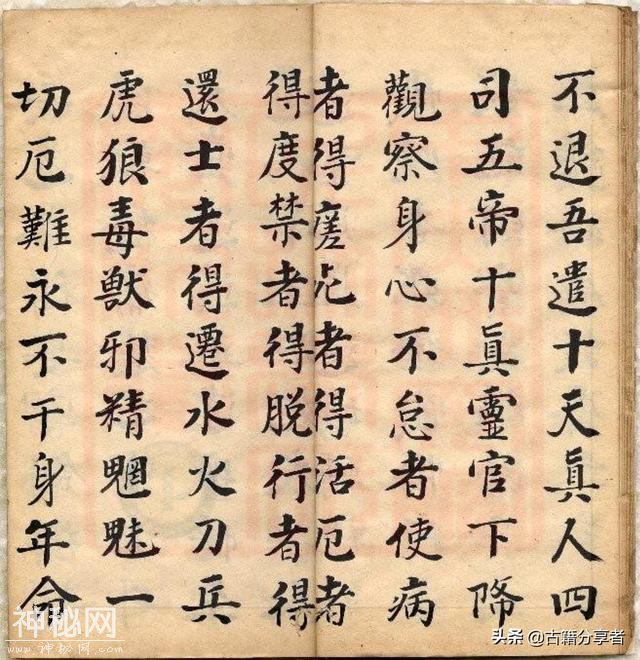 不退吾遣十天眞人四
司五帝十眞靈官下降
觀察身心不怠者使病
者得瘥者得活厄者
得度禁者得脫行者得
還士者得遷水火刀兵
虎狼毒獸邪精魍魅一
切厄難永不干身年命
神秘网
www.神秘网.com
头条 @古籍分享者